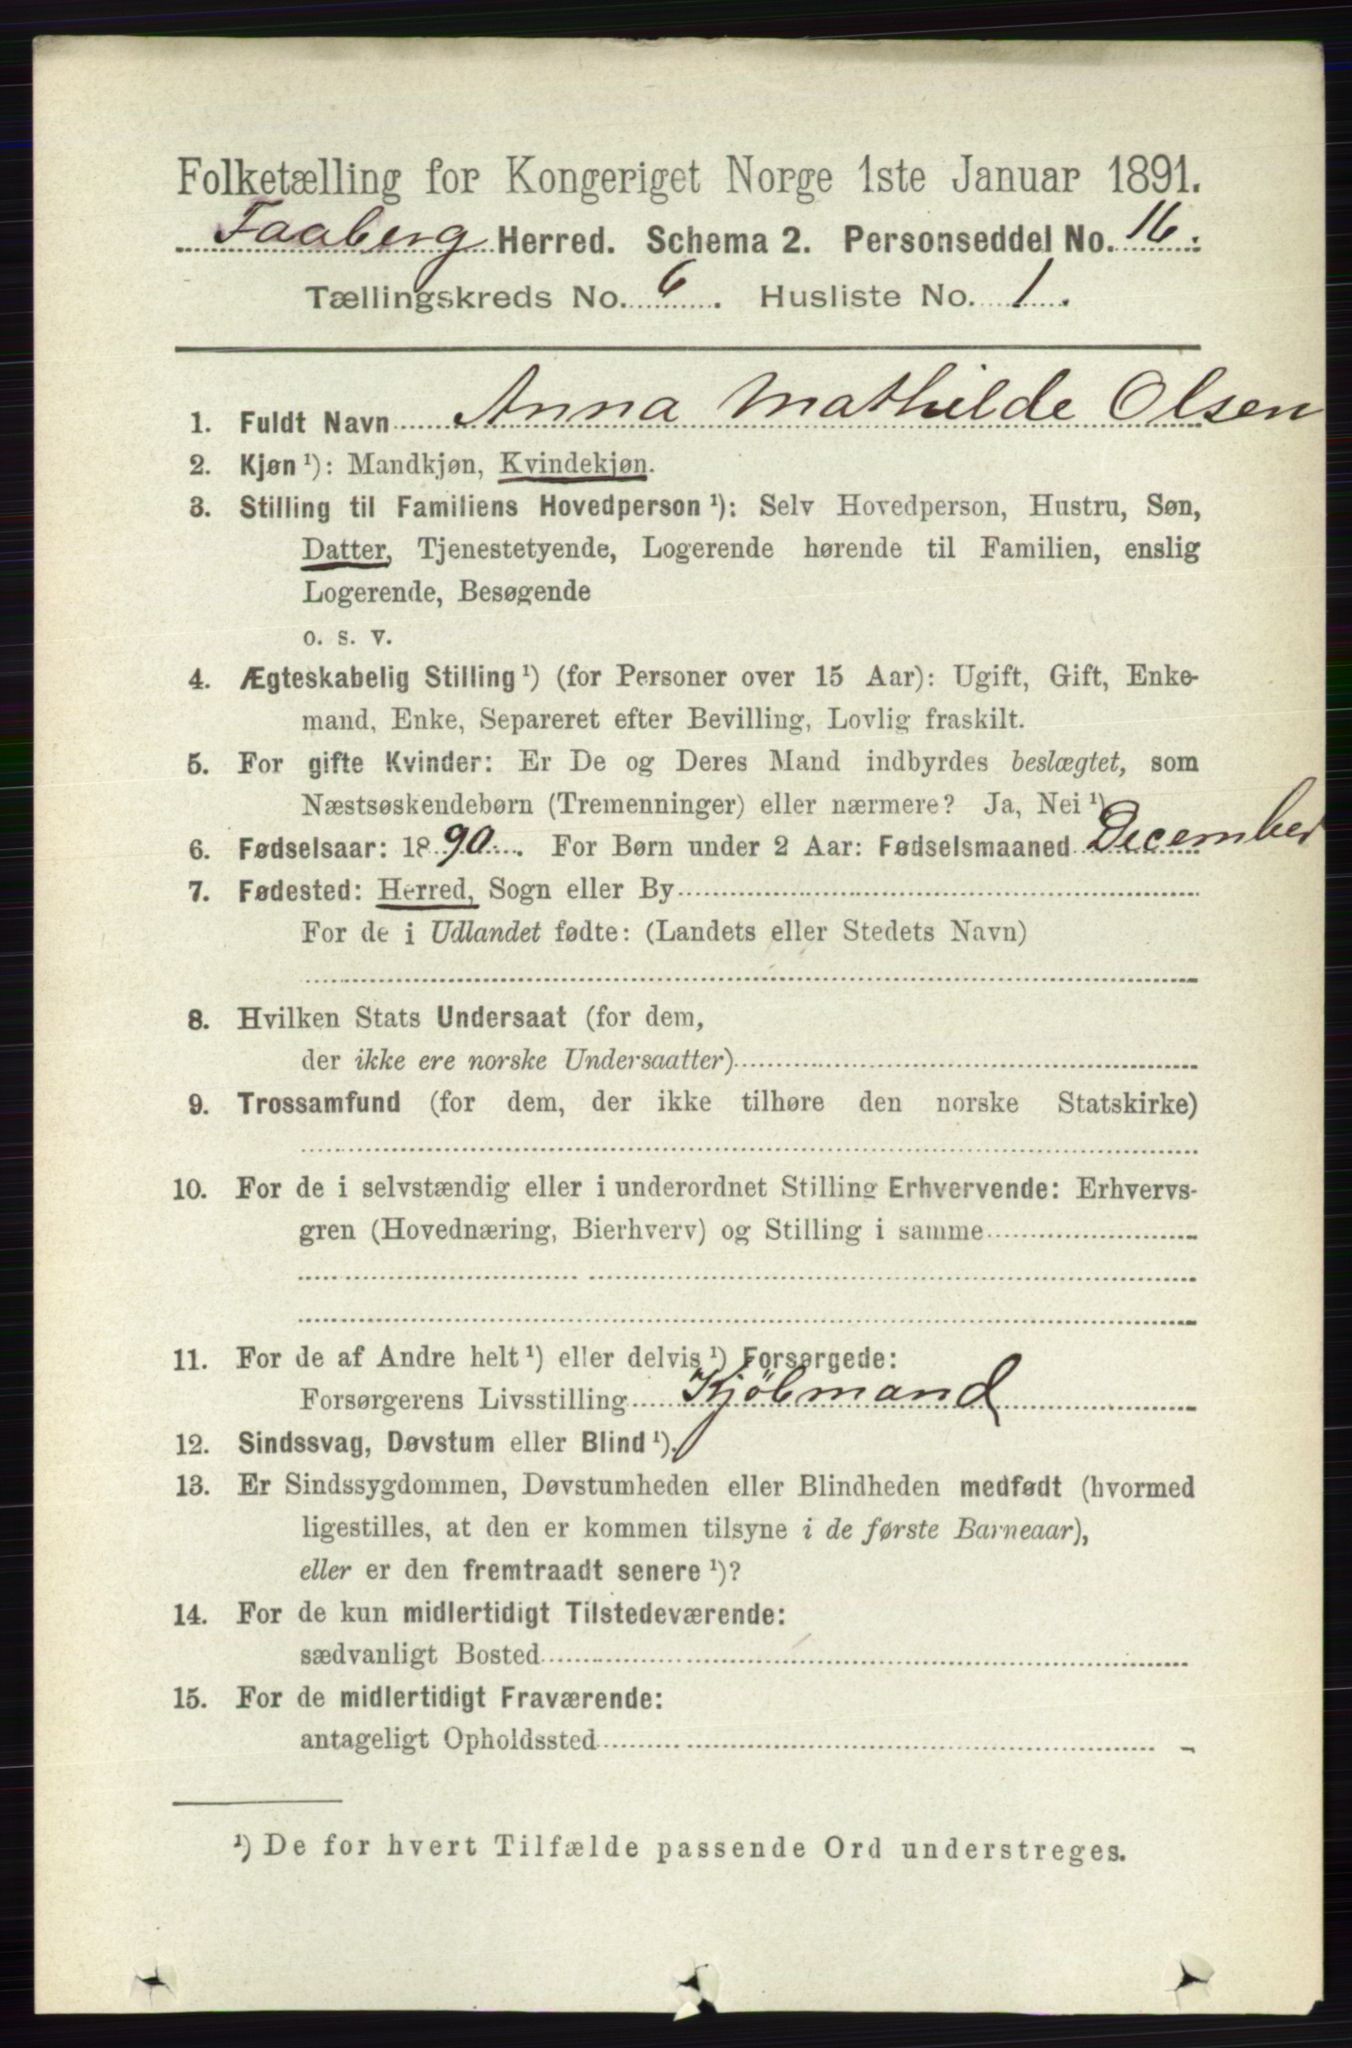 Folketælling for Kongeriget Norge 1ste Januar 1891.
Faaberg Herred. Schema 2. Personseddel No. 16.
Tællingskreds No. 6. Husliste No. 1.
1. Fuldt Navn Anna Mathilde Olsen
2. Kjøn ¹): Mandkjøn, Kvindekjøn.
3. Stilling til Familiens Hovedperson ¹): Selv Hovedperson, Hustru, Søn,
Datter, Tjenestetyende, Logerende hørende til Familien, enslig
Logerende, Besøgende
o. s. v.
4. Ægteskabelig Stilling ¹) (for Personer over 15 Aar): Ugift, Gift, Enke-
mand, Enke, Separeret efter Bevilling, Lovlig fraskilt.
5. For gifte Kvinder: Er De og Deres Mand indbyrdes beslægtet, som
Næstsøskendebørn (Tremenninger) eller nærmere? Ja, Nei ¹)
6. Fødselsaar: 1890. For Børn under 2 Aar: Fødselsmaaned December
7. Fødested: Herred, Sogn eller By
For de i Udlandet fødte: (Landets eller Stedets Navn)
8. Hvilken Stats Undersaat (for dem,
der ikke ere norske Undersaatter)
9. Trossamfund (for dem, der ikke tilhøre den norske Statskirke)
10. For de i selvstændig eller i underordnet Stilling Erhvervende: Erhvervs-
gren (Hovednæring, Bierhverv) og Stilling i samme
11. For de af Andre helt ¹) eller delvis ¹) Forsørgede:
Forsørgerens Livsstilling Kjöbmand
12. Sindssvag, Døvstum eller Blind ¹).
13. Er Sindssygdommen, Døvstumheden eller Blindheden medfødt (hvormed
ligestilles, at den er kommen tilsyne i de første Barneaar),
eller er den fremtraadt senere ¹)?
14. For de kun midlertidigt Tilstedeværende:
sædvanligt Bosted
15. For de midlertidigt Fraværende:
antageligt Opholdssted
¹) De for hvert Tilfælde passende Ord understreges.